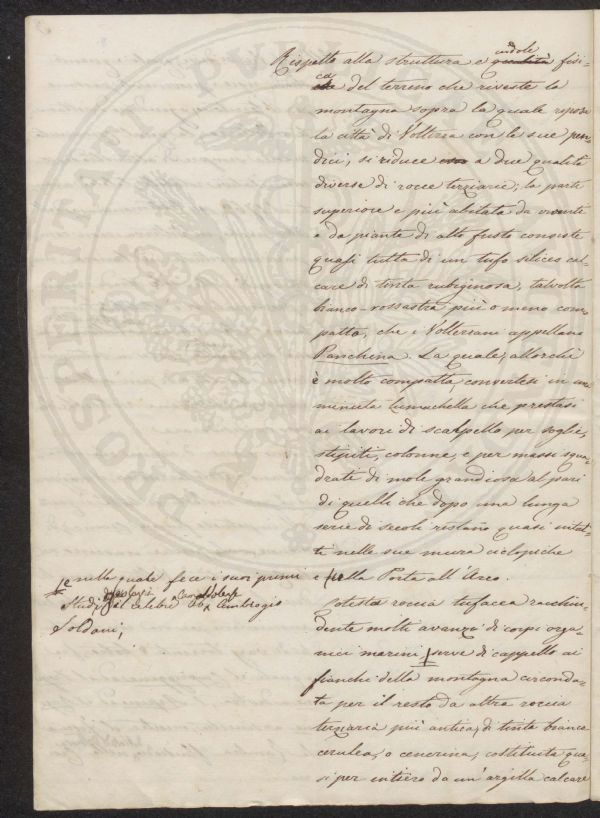 Rispetto alla struttura e qualità indole fisi-
ca del terreno che riveste la
montagna sopra la quale riposa
la città di Volterra con le sue pen-
dici, si riduce a due qualità
diverse di rocce terziarie; la parte
superiore e più abitata da vivente
e da piante di alto fusto consiste
quasi tutta di un tufo siliceo cal-
care di tinta rubiginosa, talvolta
bianco-rossastra più o meno com-
patto, che i Volterrani appellano
Panchina. La quale, allorchè
è molto compatta, convertesi in una
minuta lumachella che prestasi
ai lavori di scalpello per soglie,
stipiti, colonne, e per massi squa-
drati di mole grandiosa al pari
di quelli che dopo una lunga
serie di secoli restano quasi intat-
ti nelle sue mura ciclopiche
e nella Porta all'Arco.
Cotesta roccia tufacea racchiu-
dente molti avanzi di corpi orga-
nici marini serve di cappello ai
fianchi della montagna circonda-
ta per il resto da altra roccia
terziaria più antica, di tinta bianco
cerulea, o cenerina, costituita qua-
si per intiero da un'argilla calcare
nella quale fece i suoi primi
studj il celebre Ab. Camaldolese Ambrogio
Soldani,
PROSPERITATI PVBL